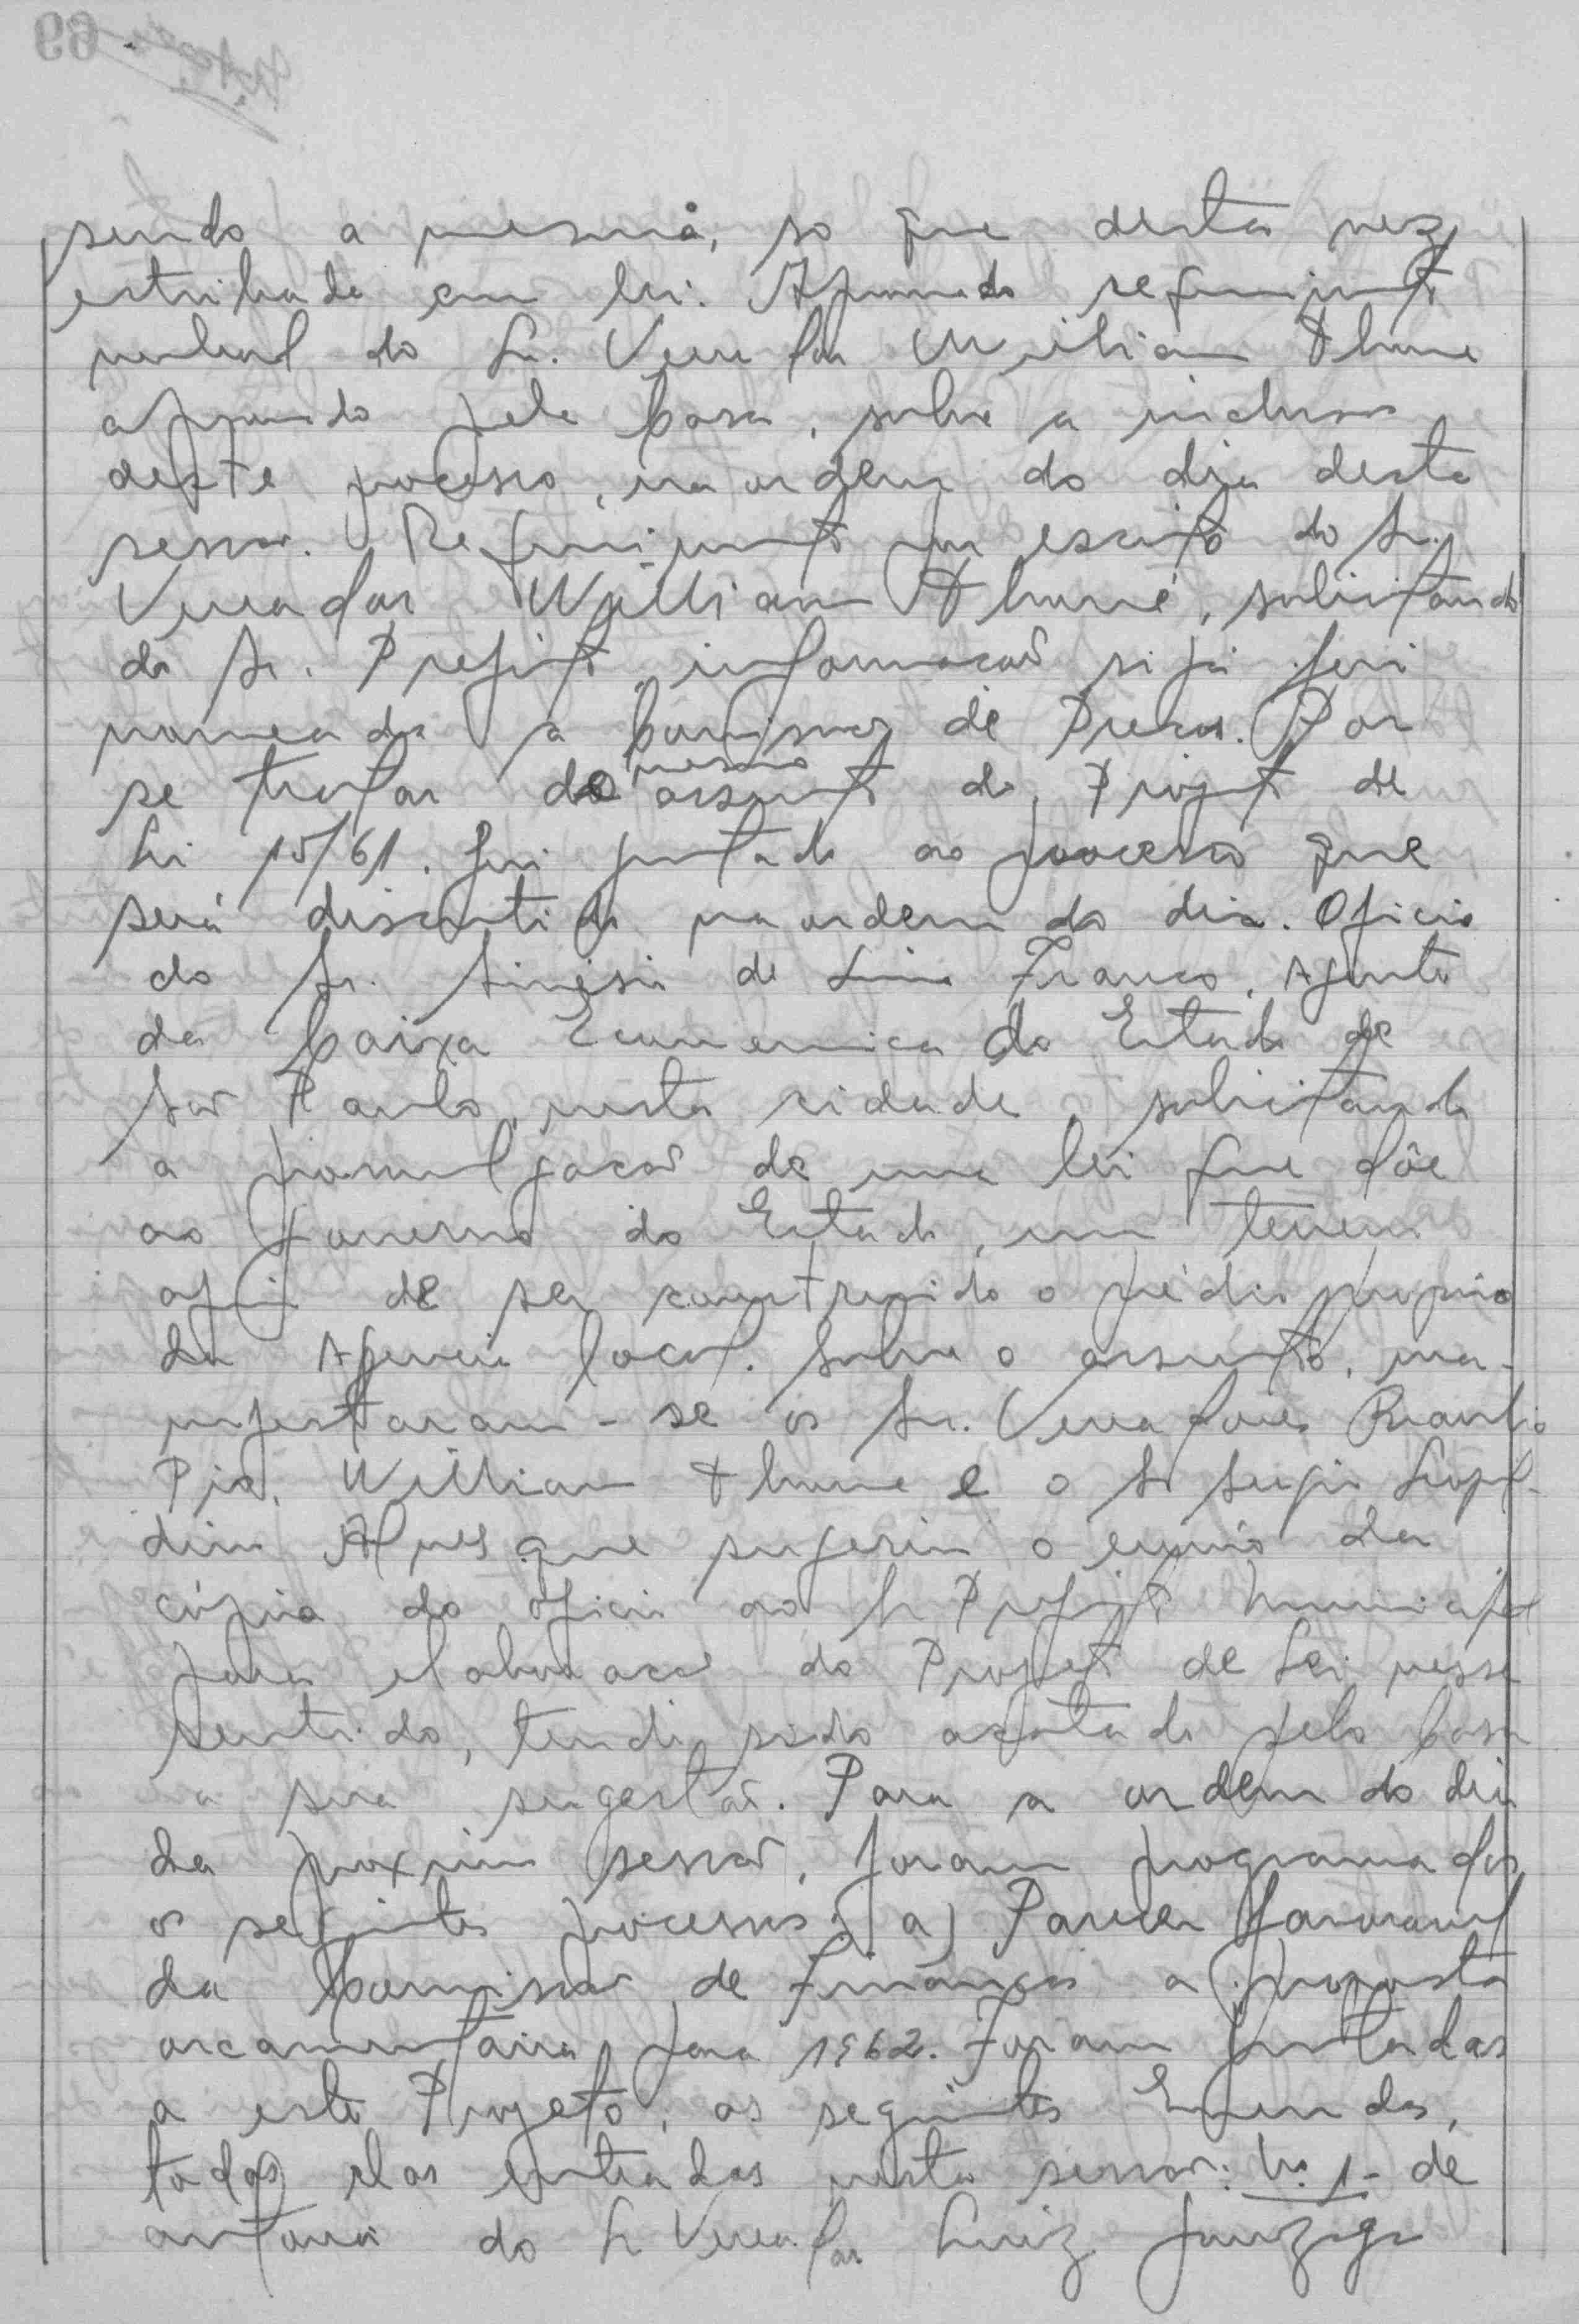 sendo a mesma, so que desta vez
estribado em lei. Aprovado requerimento
verbal do Sr. Vereador Willian Thomé
aprovado pela Casa, sobre a inclusao
deste processo, na ordem do dia desta
sessao. Requerimento por escrito do Sr.
Vereador Willian Thomé, solicitando
do Sr. Prefeito informacao si já foi
nomeada a Comissao de Precos. Por
se tratar do mesmo assunto do Projeto de
Lei 15/61. foi juntado ao processo que
será discutido na ordem do dia. Oficio
do Sr. Sinésio de Lima Franco, Agente
da Caixa Economica do Estado de
Sao Paulo, nesta cidade, solicitando
a promulgacao de uma lei que dôe
ao Governo do Estado, um terreno
afim de ser construido o prédio proprio
da Agencia local. Sobre o assunto, ma-
nifestaram-se os Sr. Vereadores Braulio
Pio, Willian Thomé e o Sr Sergio Leopol-
dino Alves que sugeriu o envio da
cópia do oficio ao Sr Prefeito Municipal
para elaboracao do Projeto de Lei nesse
sentido, tendo sido acatado pela Casa
a sua sugestao. Para a ordem do dia
da proxima sessao, foram programados
os seguintes processos: a) Parecer favoravel
da Comissao de Finanças a proposta
orcamentaria para 1962. Foram juntadas
a este Projeto, as seguintes Emendas,
todas elas entradas nesta sessao: No. 1- de
autoria do Sr Vereador Luiz Gonzaga